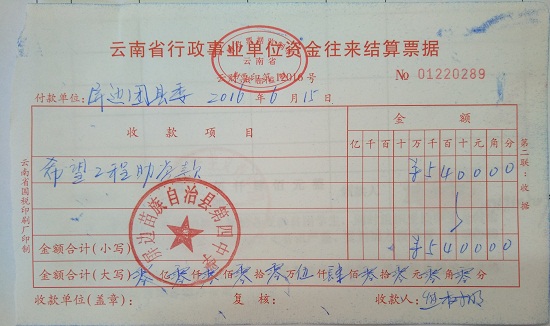 云南省行政事业单位资金往来结算票据
云南省
2016号
No 01220289
付款单位：屏边团县委 2016年6月15日
收款项目 金额
亿千百十万千百十元角分
希望工程助学款 ¥540000
金额合计（小写） ¥540000
金额合计（大写）零亿零仟零佰零拾零万伍仟肆佰零拾零元零角零分
收款单位（盖章）： 复核： 收款人：
屏边苗族自治县第四中学
第二联：收据
云南省国税印刷厂印制